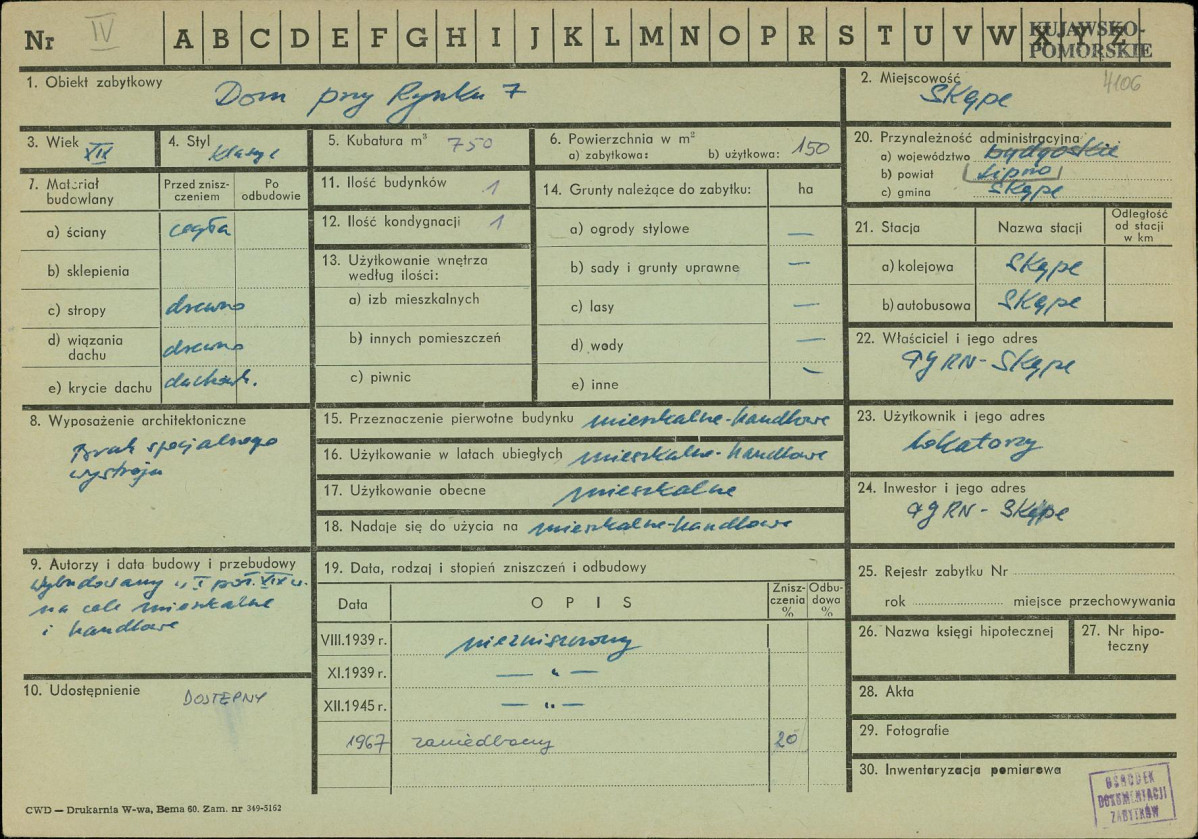 Nr IV A B C D E F G H I J K L M N O P R S T U V W X Y Z KUJAWSKO-
POMORSKIE
1. Obiekt zabytkowy Dom przy Rynku 7
2. Miejscowość 4106
Skępe
3. Wiek XIX
4. Styl klasyc
5. Kubatura m³ 750
6. Powierzchnia w m²
a) zabytkowa: b) użytkowa: 150
7. Materiał
budowlany
Przed znisz-
czeniem
Po
odbudowie
a) ściany cegła
b) sklepienia
c) stropy drewno
d) wiązania
dachu drewno
e) krycie dachu dachówk.
8. Wyposażenie architektoniczne
Brak specjalnego
wystroju
9. Autorzy i data budowy i przebudowy
Wybudowany w I poł. XIX w.
na cele mieszkalne
i handlowe
10. Udostępnienie DOSTĘPNY
11. Ilość budynków 1
12. Ilość kondygnacji 1
13. Użytkowanie wnętrza
według ilości:
a) izb mieszkalnych
b) innych pomieszczeń
c) piwnic
14. Grunty należące do zabytku: ha
a) ogrody stylowe —
b) sady i grunty uprawne —
c) lasy —
d) wody —
e) inne —
15. Przeznaczenie pierwotne budynku mieszkalne-handlowe
16. Użytkowanie w latach ubiegłych mieszkalne-handlowe
17. Użytkowanie obecne mieszkalne
18. Nadaje się do użycia na mieszkalne-handlowe
19. Data, rodzaj i stopień zniszczeń i odbudowy
Data OPIS Znisz-
czenia
% Odbu-
dowa
%
VIII.1939 r. niezniszczony
XI.1939 r. — „ —
XII.1945 r. — „ —
1967 zaniedbany 20
20. Przynależność administracyjna
a) województwo bydgoskie
b) powiat Lipno
c) gmina Skępe
21. Stacja Nazwa stacji Odległość
od stacji
w km
a) kolejowa Skępe
b) autobusowa Skępe
22. Właściciel i jego adres
GRN - Skępe
23. Użytkownik i jego adres
lokatorzy
24. Inwestor i jego adres
GRN - Skępe
25. Rejestr zabytku Nr
rok miejsce przechowywania
26. Nazwa księgi hipotecznej
27. Nr hipo-
teczny
28. Akta
29. Fotografie
30. Inwentaryzacja pomiarowa
OŚRODEK
DOKUMENTACJI
ZABYTKÓW
CWD — Drukarnia W-wa, Bema 60. Zam. nr 349-5162